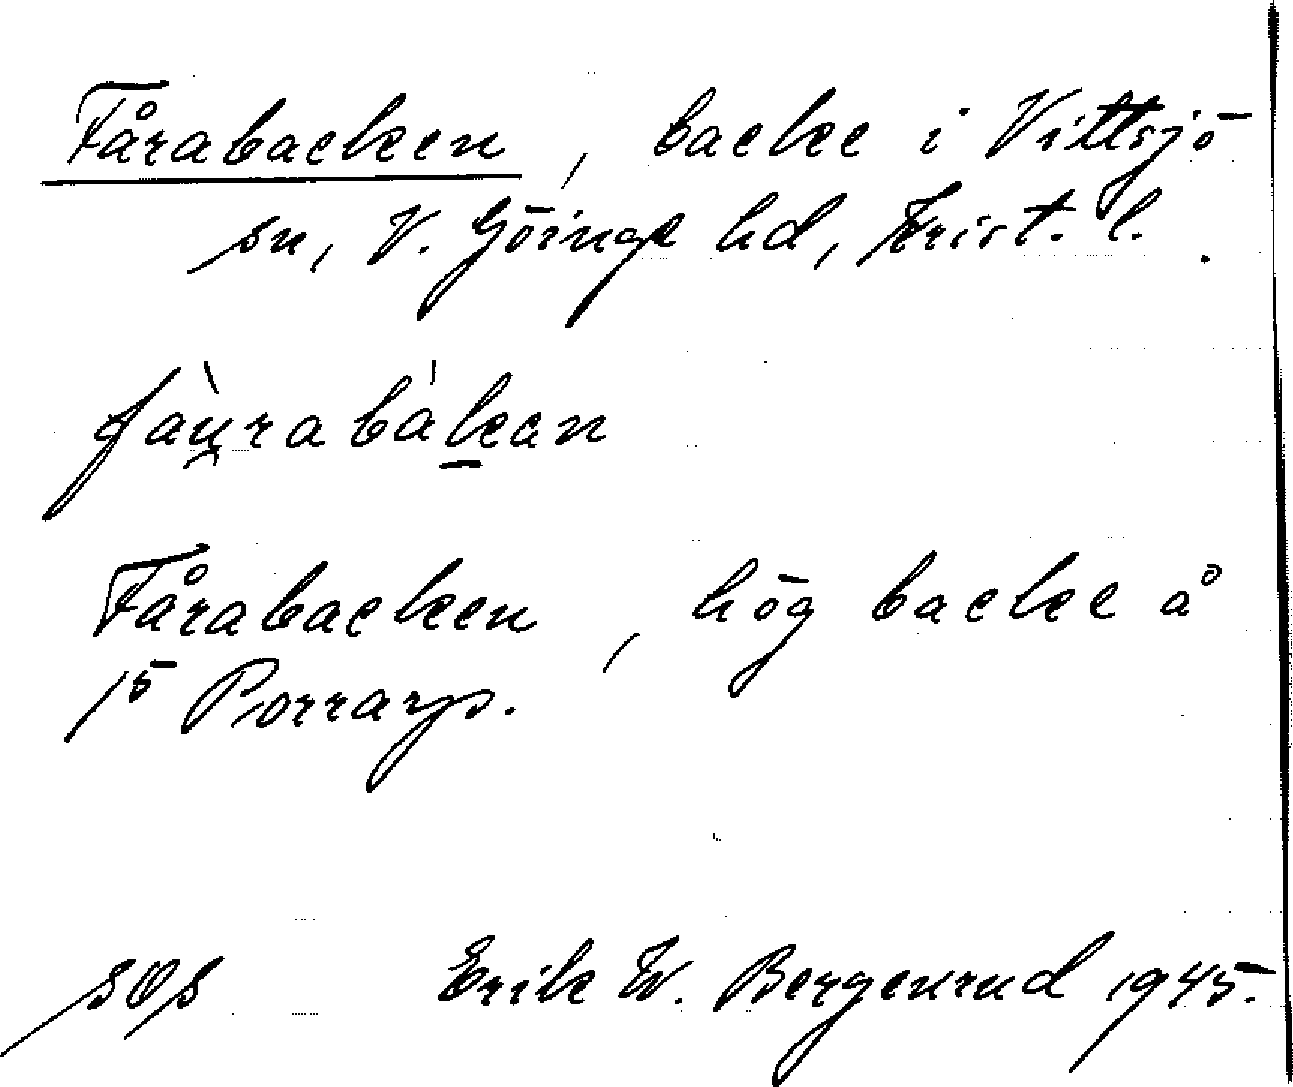 Fårabacken, backe i Vittsjö
sn, V. Göinge hd, Krist. l.
fàu̯rabàk̠an
Fårabacken, hög backe å
15 Porrarp.
SOS Erik W. Bergenrud 1945.